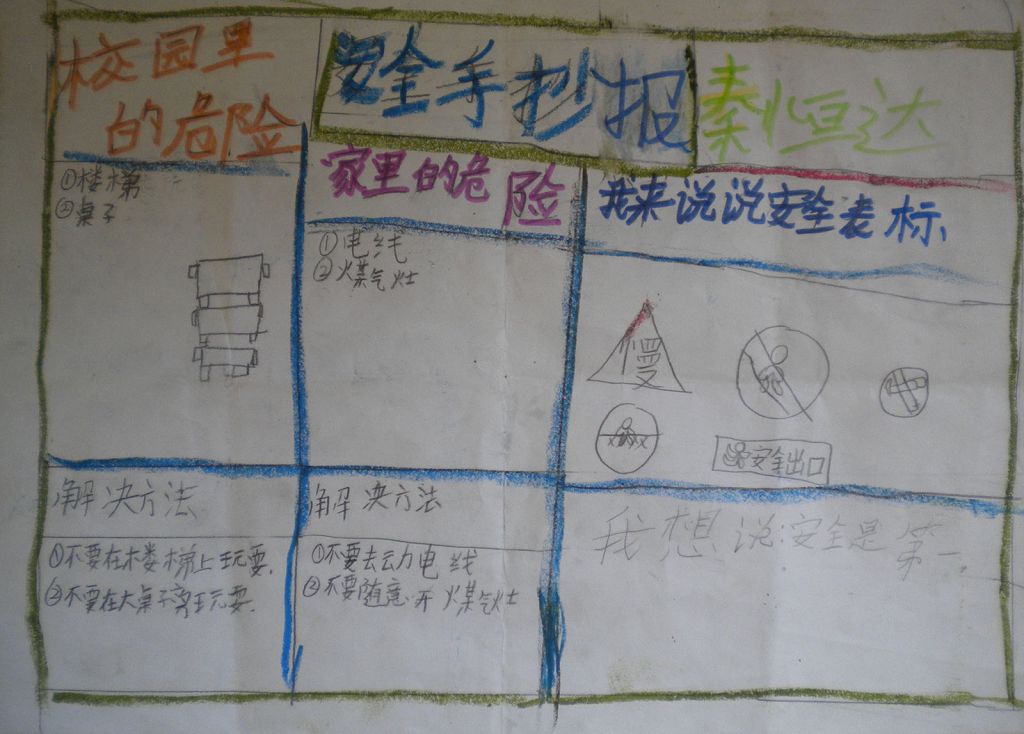 校园里
的危险
安全手抄报
秦恒达
①楼梯
②桌子
家里的危险
①电线
②煤气灶
我来说说安全表标
慢
安全出口
解决方法
①不要在楼梯上玩耍.
②不要在大桌子旁玩耍.
解决方法
①不要去动电线
②不要随意开煤气灶
我想说:安全是第一.